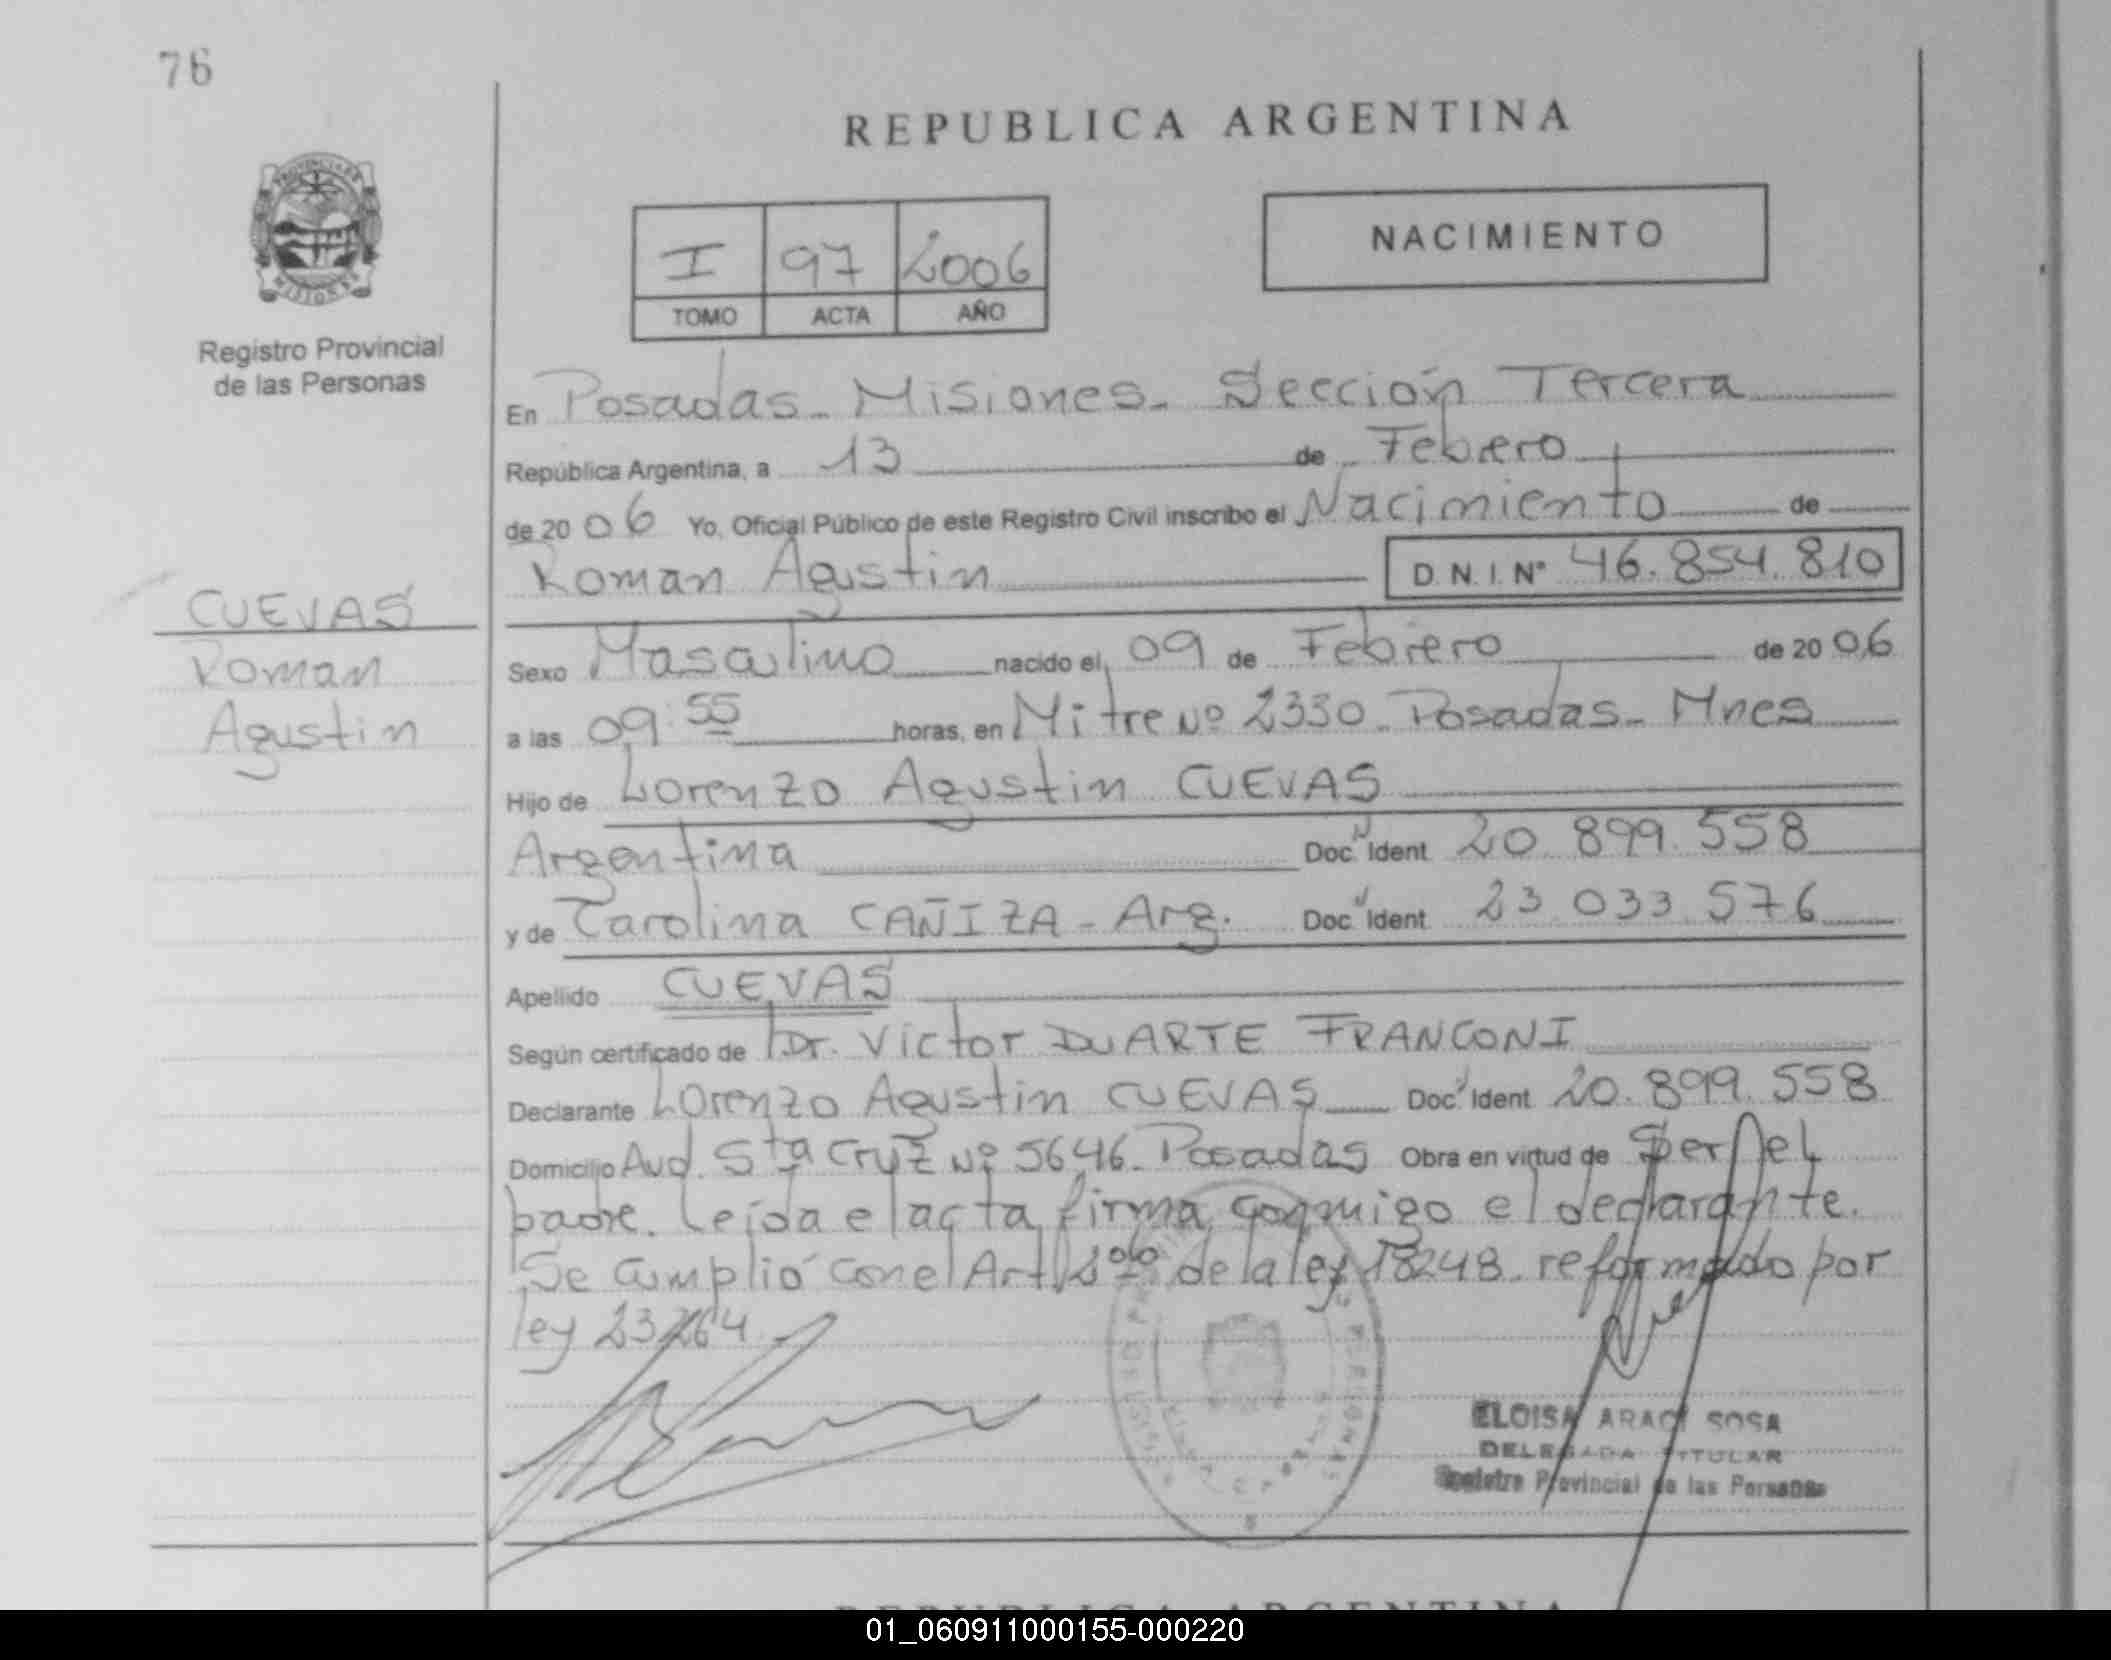 76
REPUBLICA ARGENTINA
PROVINCIA DE
MISIONES
Registro Provincial
de las Personas
I 97 2006
TOMO ACTA AÑO
NACIMIENTO
En Posadas - Misiones - Sección Tercera
República Argentina, a 13 de Febrero
de 2006 Yo, Oficial Público de este Registro Civil inscribo el Nacimiento de
Roman Agustin D.N.I. Nº 46.854.810
CUEVAS
Roman
Agustin
Sexo Masculino nacido el 09 de Febrero de 2006
a las 09:55 horas, en Mitre Nº 2330 - Posadas - Mnes
Hijo de Lorenzo Agustin CUEVAS
Argentina Doc. Ident 20.899.558
y de Carolina CAÑIZA - Arg. Doc. Ident 23.033.576
Apellido CUEVAS
Según certificado de Dr. Victor DUARTE FRANCONI
Declarante Lorenzo Agustin CUEVAS Doc. Ident 20.899.558
Domicilio Avd. Sta Cruz Nº 5646 - Posadas Obra en virtud de Ser el
padre. Leída el acta firma conmigo el declarante.
Se cumplió con el Art 2º de la ley 18248 - reformado por
ley 23264
ELOISA ARACI SOSA
DELEGADA TITULAR
Registro Provincial de las Personas
REPUBLICA ARGENTINA
01_060911000155-000220